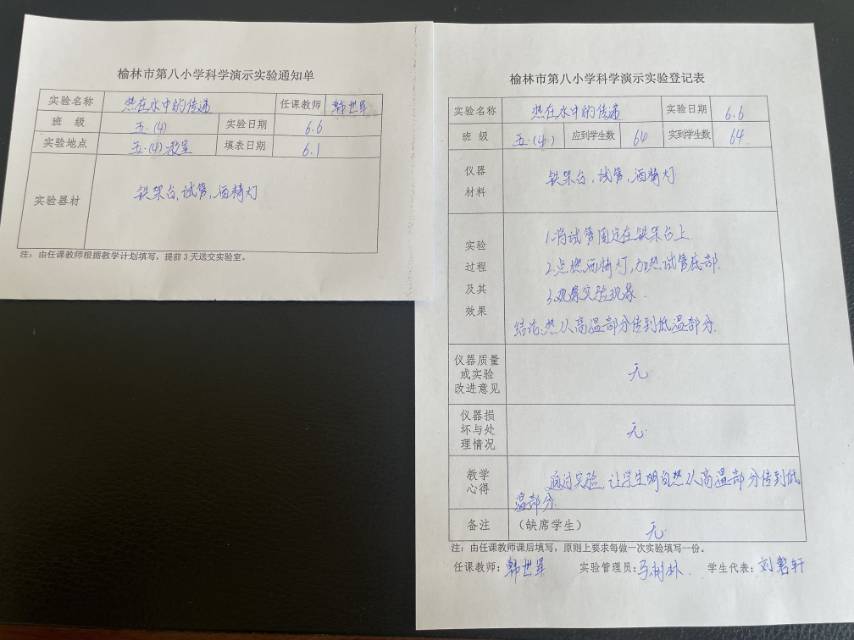 榆林市第八小学科学演示实验通知单
实验名称 热在水中的传递 任课教师 韩世军
班 级 五.(4) 实验日期 6.6
实验地点 五.(4)教室 填表日期 6.1
实验器材 铁架台,试管,酒精灯
注:由任课教师根据教学计划填写,提前3天送交实验室。
榆林市第八小学科学演示实验登记表
实验名称 热在水中的传递 实验日期 6.6
班 级 五.(4) 应到学生数 64 实到学生数 64
仪器
材料
铁架台,试管,酒精灯
实验
过程
及其
效果
1.将试管固定在铁架台上
2.点燃酒精灯,加热试管底部.
3.观察实验现象.
结论:热从高温部分传到低温部分.
仪器质量
或实验
改进意见
无
仪器损
坏与处
理情况
无.
教学
心得
通过实验,让学生明白热从高温部分传到低
温部分.
备注 (缺席学生) 无.
注:由任课教师课后填写,原则上要求每做一次实验填写一份。
任课教师:韩世军 实验管理员:马树林. 学生代表:刘 轩